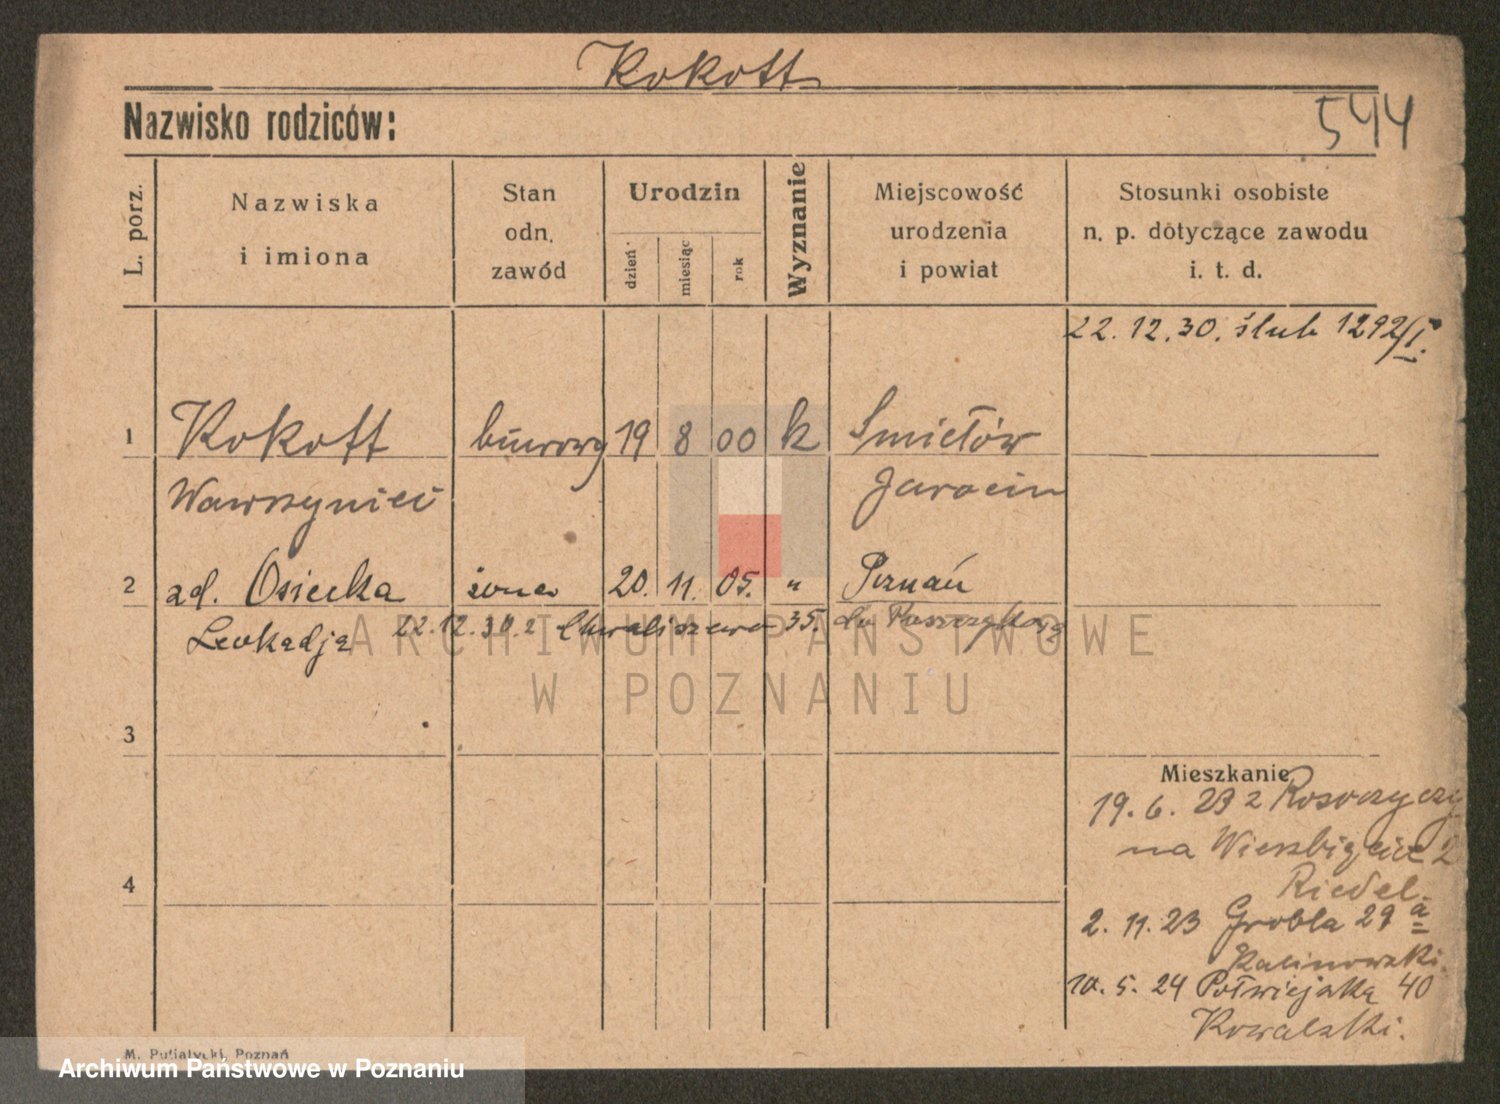 Kokott
Nazwisko rodziców:
544
L. porz.
Nazwiska
i imiona
Stan
odn.
zawód
Urodzin
dzień
miesiąc
rok
Wyznanie
Miejscowość
urodzenia
i powiat
Stosunki osobiste
n. p. dotyczące zawodu
i. t. d.
22.12.30. ślub 1292/I.
1 Kokott biurowy 19 8 00 k Śmiełów
Wawrzyniec Jarocin
2 zd. Osiecka żona 20. 11. 05. " Poznań
Leokadja 22.12.30. z Chwaliszewo 35. do
ARCHIWUM PAŃSTWOWE
W POZNANIU
3
Mieszkanie
19. 6. 23 z
na Wierzbięcice 2
4
Riedel.
2. 11. 23 Grobla 29 a
Kalinowski.
10. 5. 24 Półwiejska 40
Kowalski.
M. Putiatycki, Poznań
Archiwum Państwowe w Poznaniu